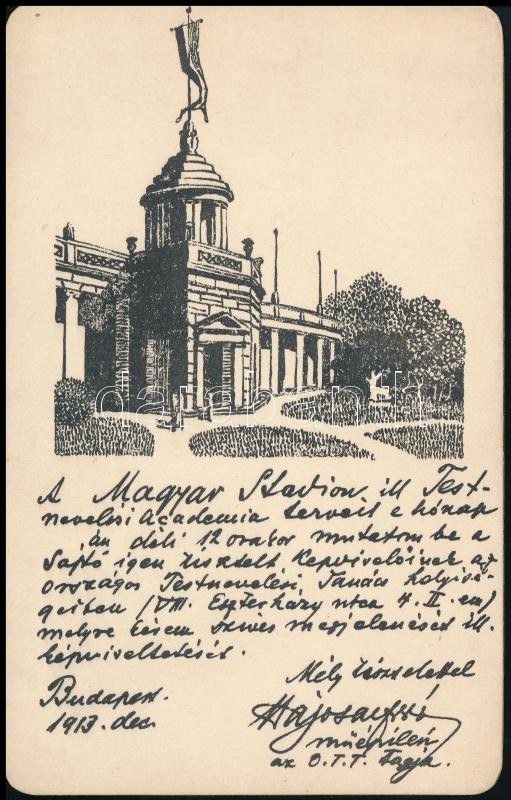 darabanth
A Magyar Stadion ill Test-
nevelési Academia terveit e hónap
án déli 12 órakor mutatom be a
Sajtó igen tisztelt képviselőinek az
Országos Testnevelési Tanács helyisé-
geiben (VIII. Eszterházy utca 4. II. em)
melyre kérem szíves megjelenését ill.
képviseltetését.
Mély tisztelettel
Budapest.
1913. dec.
Hajós Alfréd
műépítész
az O.T.T. tagja.